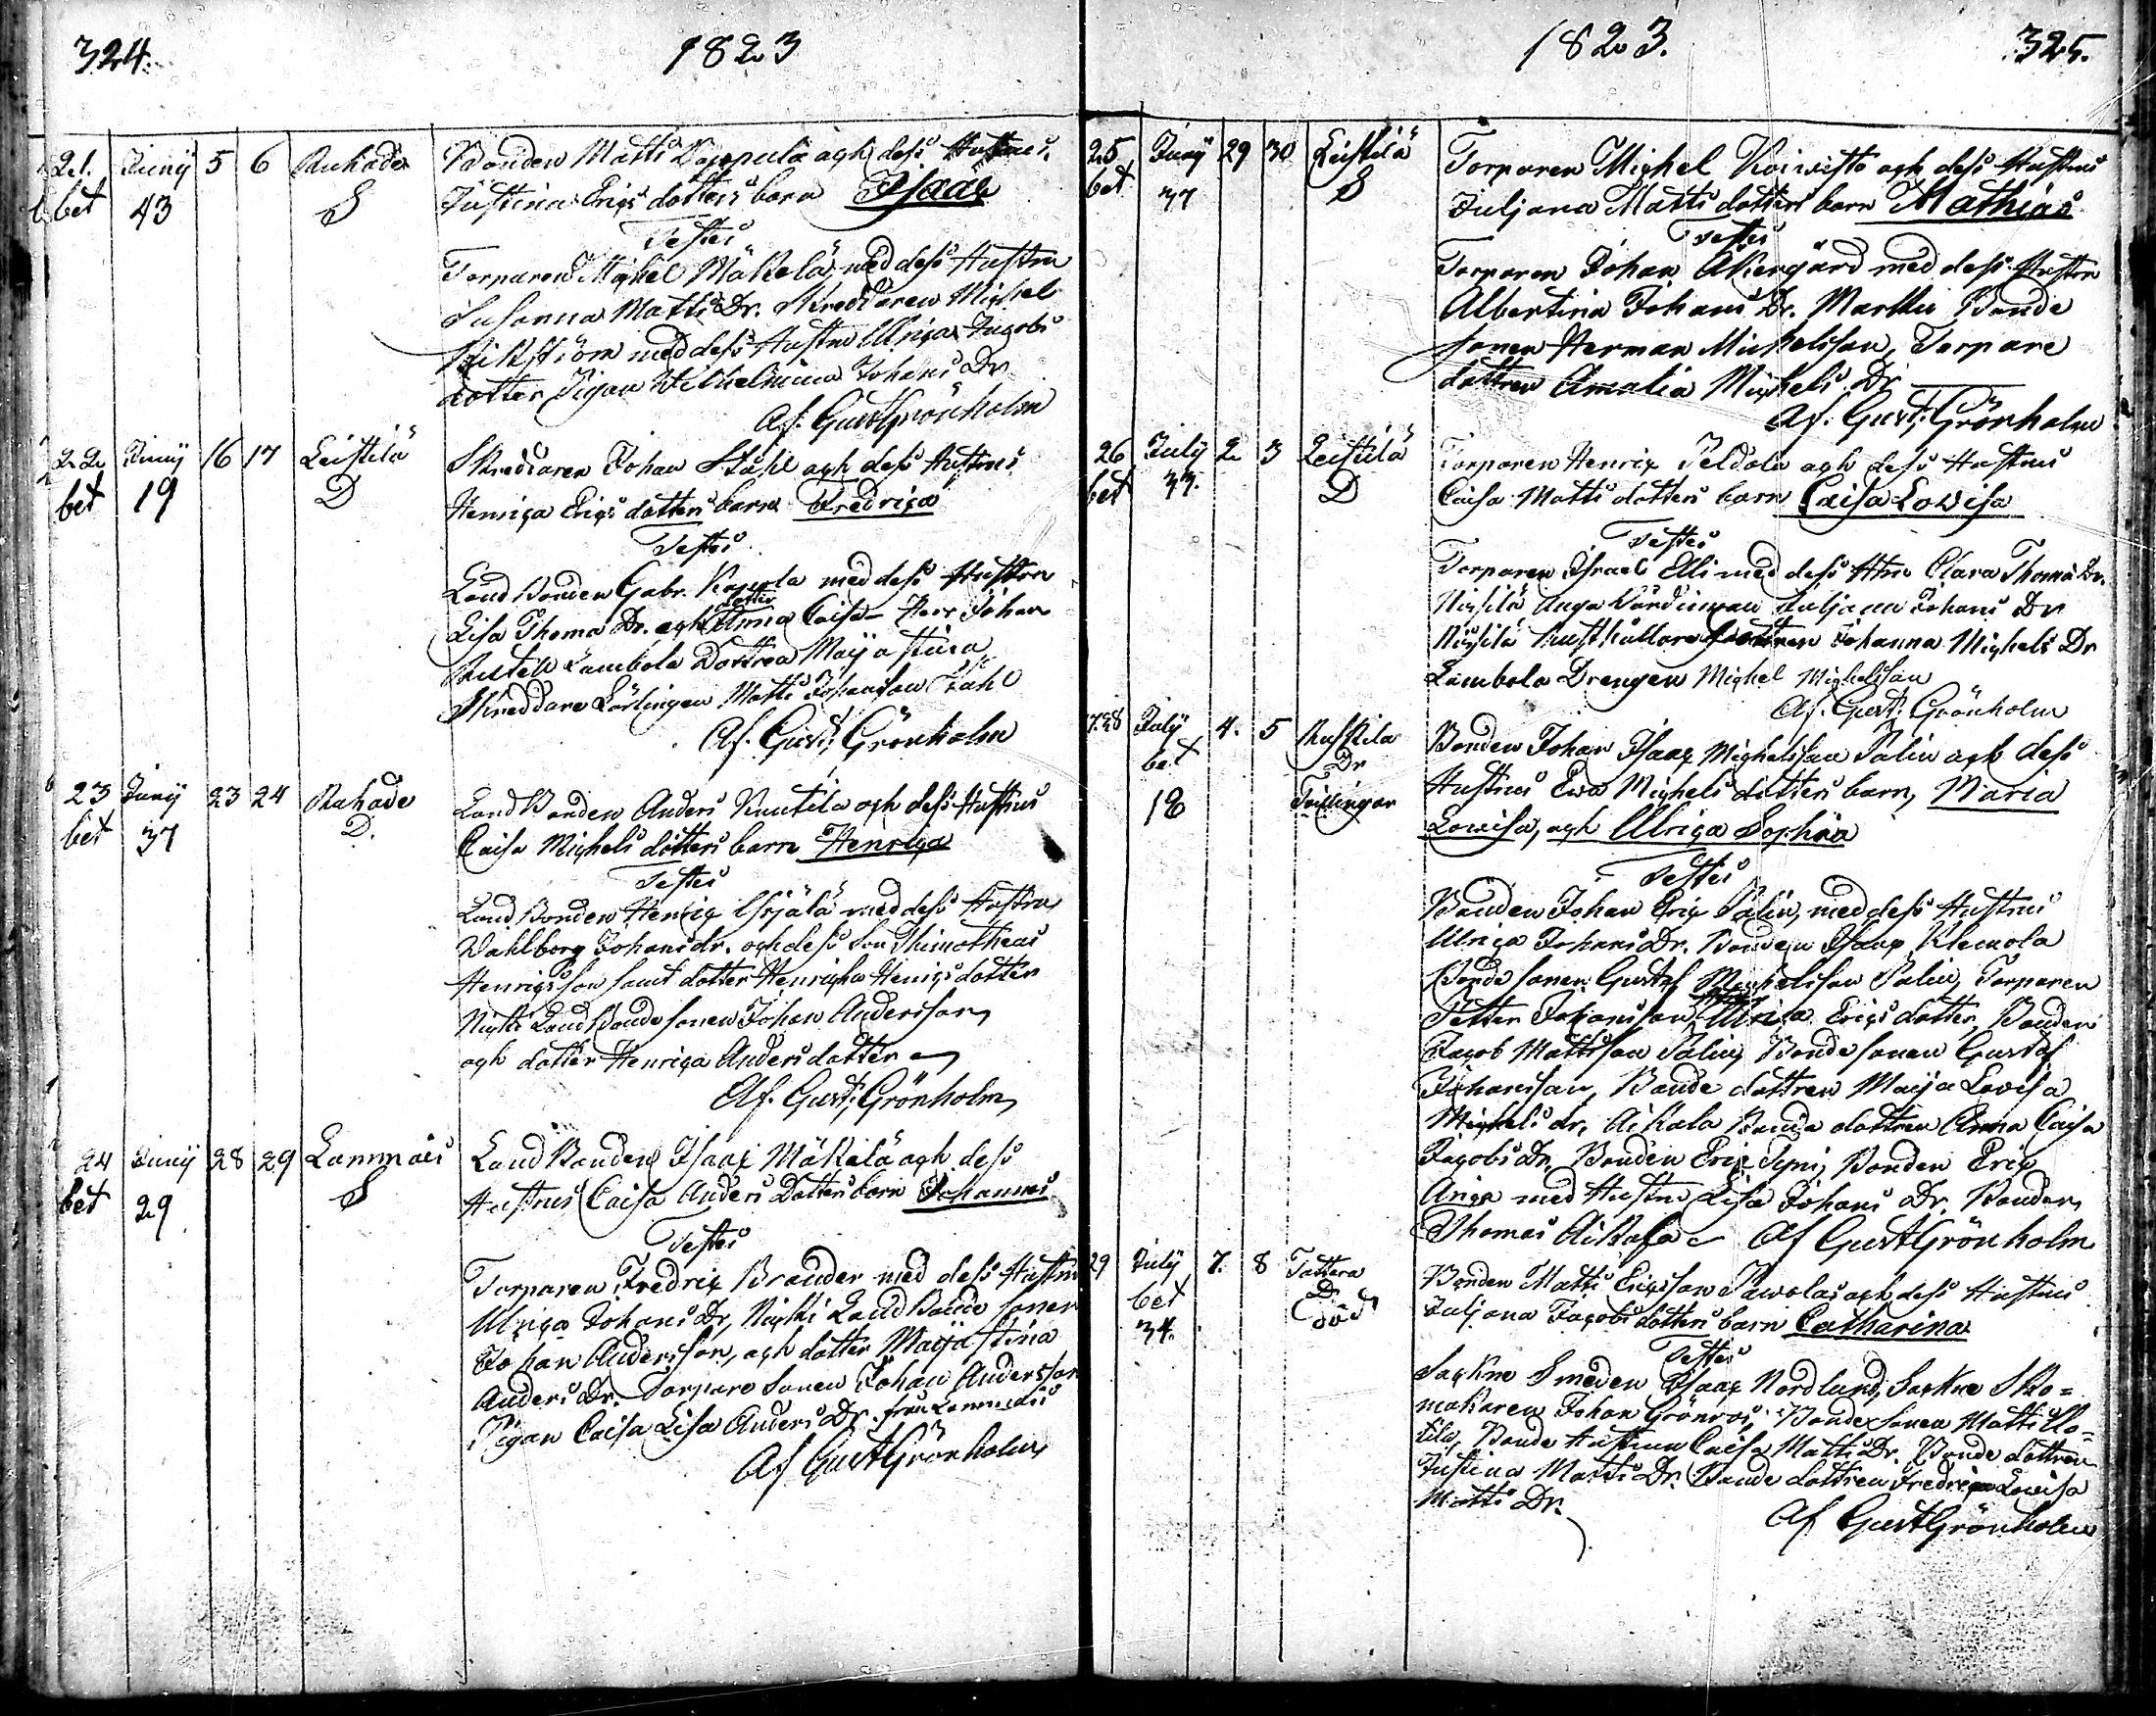 324. 1823
21. Junij 5 6 Ruhade Bonden Matti Kappula och dess Hustrus
bet 43 S Justina Erics dotters barn Isaac
Testes
Torparen Michel Mäkelä, med dess Hustru
Susanna Matts Dr. Skreddaren Michel
med dess Hustru Ulrica Jacobs
dotter Pigan Wilhelmina Johans Dr
Af. Gust Grönholm
22 Junij 16 17 Leistilä Skreddaren Johan Ståhl och dess Hustrus
bet 19 D Henrica Erics dotters barn Fredrica
Testes
Land Bonden Gabr. med dess Hustru
Lisa Thoma Dr. och dotter Anna Caisa Herr Johan
Lambola Dottren Maija Stina
Skreddare Lärlingen Matts Johansson Ståhl
Af. Gust: Grönholm
23 Junij 23 24 Ruhade Land Bonden Anders Knutila och dess Hustrus
bet 37 D. Caisa Michels dotters barn Henrica
Testes
Land Bonden Henric med dess Hustru
Wahlborg Johans dr. och dess Son Thimotheus
Henricsson samt dotter Henricha Henrics dotter
Land Bonde sonen Johan Andersson,
och dotter Henrica Anders dotter
Af. Gust: Grönholm
24 Junij 28 29 Lammais Land Bonden Isaac Mäkelä och dess
bet 29 S Hustrus Caisa Anders Dotters barn Johannes
Testes
Torparen Fredric Brander med dess Hustru
Ulrica Johans Dr, Land Bonde sonen
Johan Andersson, och dotter Maija Stina
Anders Dr. Torpare Sonen Johan Andersson
Pigan Caisa Lisa Anders Dr. från Lammais
Af Gust Grönholm
1823. 325.
25 Junij 29 30 Leistilä Torparen Michel Koivisto och dess Hustrus
bet 37 S Juljana Matts dotters barn Mathias
Testes
Torparen Johan Åkergård med dess Hustru
Albertina Johans Dr. Marttu Bonde
sonen Herman Michelsson, Torpare
dottren Amalia Michels Dr
Af. Gust: Grönholm
26 July 2 3 Leistilä Torparen Henric Peldola och dess Hustrus
bet 33. D Caisa Matts dotters barn Caisa Lovisa
Testes
Torparen Israel Alli med dess Hru Clara Thoma Dr.
Unga Värdinnan Juljana Johans Dr
Rusthållare Dottren Johanna Michels Dr
Lambola Drengen Michel Michelsson
Af. Gust: Grönholm
7.28 July 4. 5 Ruskila Bonden Johan Isaac Michelsson Palin och dess
bet Dr Hustrus Ewa Michels dotters barn, Maria
18 Tvillingar Lovisa, och Ulrica Sophia
Testes
Bonden Johan Eric Palin, med dess Hustrus
Ulrica Johans Dr. Bonden Isaac Klemola
Bonde sonen Gustaf Michelsson Palin, Torparen
Petter Johansson, Hustru Ulrica Erics dotter Bonden
Jacob Mattsson Palin, Bonde sonen Gustaf
Johansson, Bonde dottren Maija Lovisa
Michels dr, Aikala Bonde dottren Anna Caisa
Jacobs Dr. Bonden Eric Bonden Eric
Ariga med Hustru Lisa Johans Dr. Bonden
Thomas Aikala Af Gust Grönholm
29 July 7. 8 Tattara Bonden Matts Ericsson Pawolas och dess Hustrus
bet D. Juljana Jacobs dotters barn Catharina
34. död
Testes
Sockne Smeden Isaac Nordlund, Sockne Sko=
makaren Johan Grönroos, Bonde sonen Matts Ulo=
tila, Bonde Hustrun Caisa Matts Dr. Bonde dottren
Justina Matts Dr. Bonde dottren Fredrica Lovisa
Matts Dr.
Af Gust Grönholm